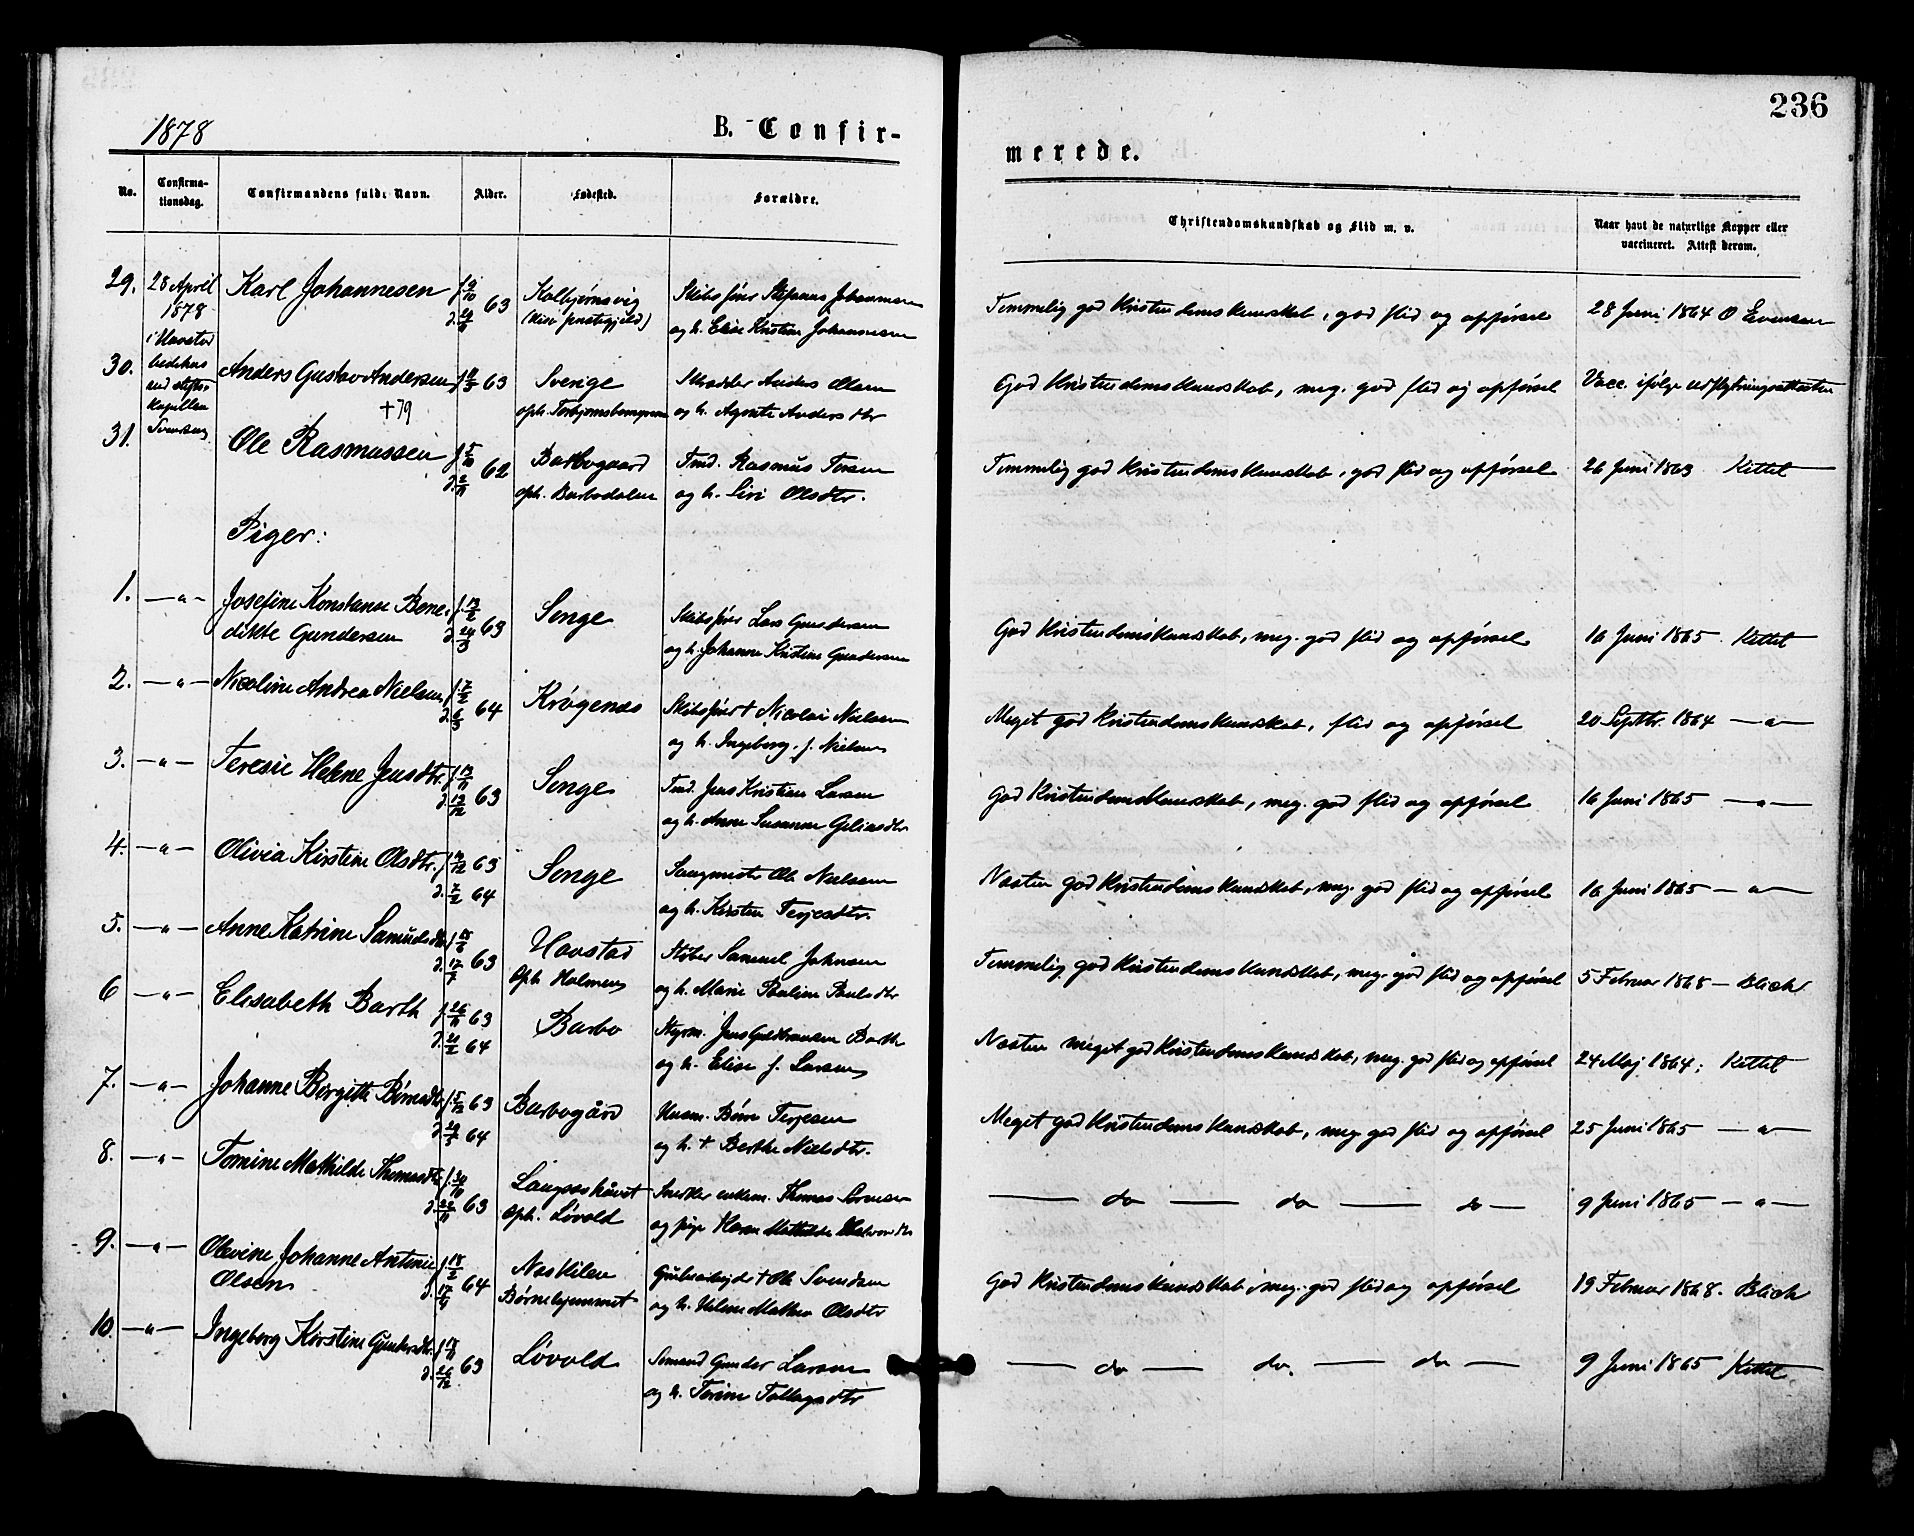 236
1878
B. Confir-
merede.
No.
Confirma-
tionsdag.
Confirmandens fulde Navn.
Alder.
Fødested.
Forældre.
Christendomskundskab og Flid m. v.
Naar havt de naturlige Kopper eller
vaccineret. Attest derom.
29. 28 April Karl Johannesen 63 Kolbjørnsvig Skibsfører Stefanus Johannesen
1878 og h. Elise Kristine Johannesen
Temmelig god Kristendomskundskab, god flid og opførsel 28 Juni 1864 O Evensen
30. Anders Gustav Andersen 63 Sverige Skrædder Anders Olsen
+79 oph. Torbjørnsbo og h. Agnete Andersdtr
God Kristendomskundskab, meg. god flid og opførsel Vacc. ifølge udflytningsattesten
31. Ole Rasmussen 62 Barbogaard Tmd. Rasmus Tersen
oph. Barbodalen og h. Siri Olsdtr.
Temmelig god Kristendomskundskab, god flid og opførsel 26 Juni 1863 Kittel
Piger:
1. —"— Josefine Konstanse Bene- 63 Songe Skibsfører Lars Gundersen
dikte Gundersen og h. Johanne Kristine Gundersen
God Kristendomskundskab, meg. god flid og opførsel 16 Juni 1865 Kittel
2. —"— Nicoline Andrea Nielsen 64 Krøgenes Skibsfører + Nicolai Nielsen
og h. Ingeborg f. Nielsen
Meget god Kristendomskundskab, flid og opførsel 20 Septbr. 1864 —"—
3. —"— Teresie Helene Jensdtr. 63 Songe Tmd. Jens Kristian Larsen
og h. Anne Susanne Geliusdtr
God Kristendomskundskab, meg. god flid og opførsel 16 Juni 1865 —"—
4. —"— Olivia Kirstine Olsdtr. 63 Songe Saugmester Ole Nielsen
64 og h. Kirsten Terjesdtr.
Næsten god Kristendomskundskab, meg. god flid og opførsel 16 Juni 1865 —"—
5. —"— Anne Katrine Samuelsdtr 63 Havstad Støber Samuel Johnsen
Oph Holmen og h. Marie Pauline Paulsdtr
Temmelig god Kristendomskundskab, meg. god flid og opførsel 5 Februar 1868 — Blich
6 —"— Elisabeth Barth 63 Barbo Styrm. Jens Guldbransen Barth
64 og h. Elise f. Larsen
Næsten meget god Kristendomskundskab, meg. god flid og opførsel 24 Maj 1864; Kittel
7. —"— Johanne Birgitte Børresdtr 63 Barbogård Husm. Børre Terjesen
64 og h. + Berthe Nielsdtr.
Meget god Kristendomskundskab, meg god flid og opførsel 25 Juni 1865 —"—
8. —"— Tomine Mathilde Thomasdtr 63 Langsæhavet Snedker enkem. Thomas
oph. Løvold og pige Karen Mathilde
— do — do — do — 9 Juni 1865 —"—
9. —"— Olevine Johanne Antonie 64 Naskilen Gulvarbejder + Ole Svendsen
Olsen Børnehjemmet og h. Helene Mathea Olsdtr
God Kristendomskundskab, meg. god flid og opførsel 19 Februar 1868. Blich
10. —"— Ingeborg Kirstine Gundersdtr. 63 Løvold Sømand Gunder Larsen
og h. Torine Tollagsdtr
— do — do. — do — 9 Juni 1865 Kittel.